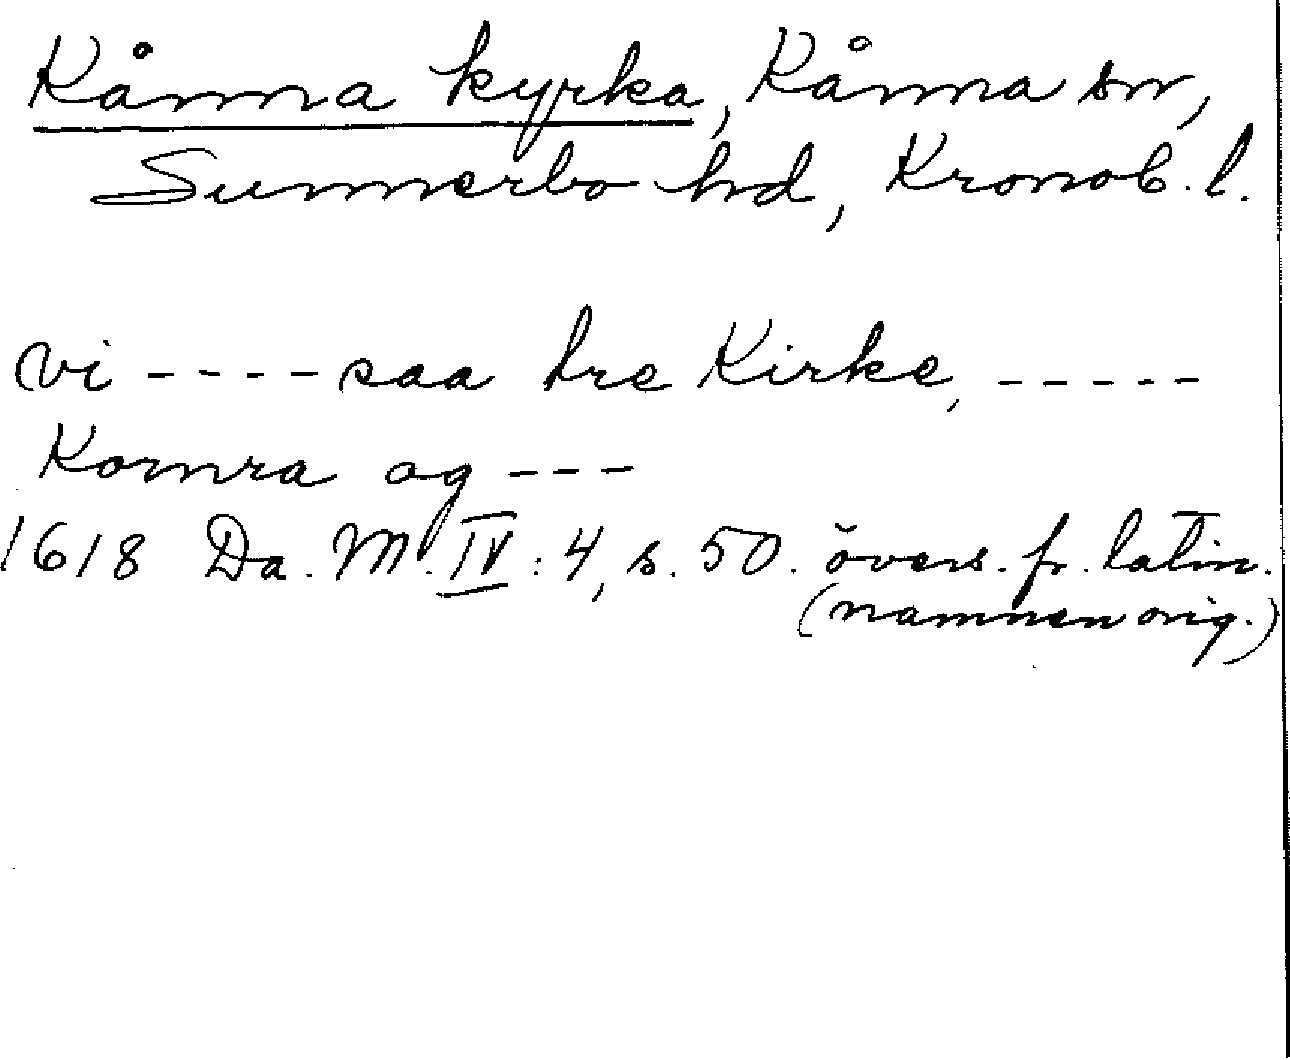 Kånna kyrka, Kånna sn,
Sunnerbo hd, Kronob. l.
vi ---- saa tre Kirke, -----
Kornra og ---
1618 Da. M. IV: 4, s. 50. övers. fr. latin.
(namnen orig.)